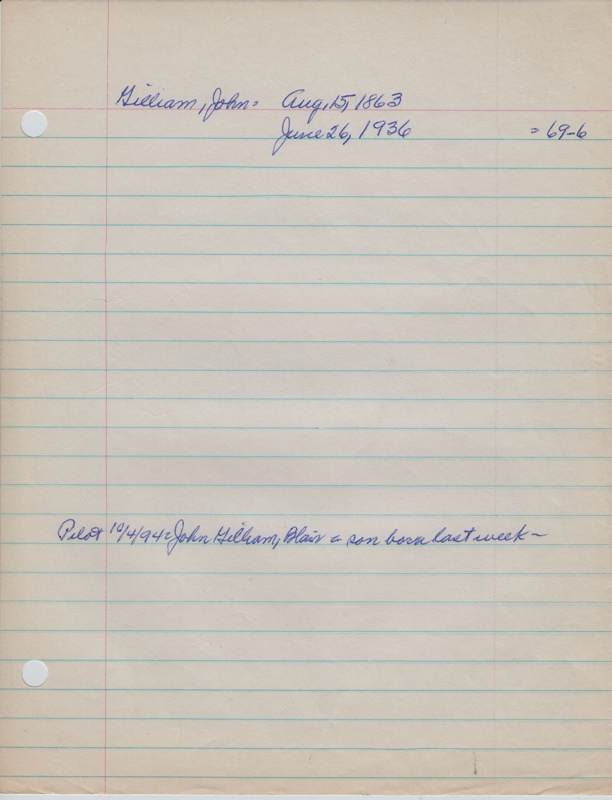 Gilliam, John = Aug. 15, 1863
June 26, 1936 = 69-6
Pilot 10/4/94 = John Gilliam, Blair = son born last week -